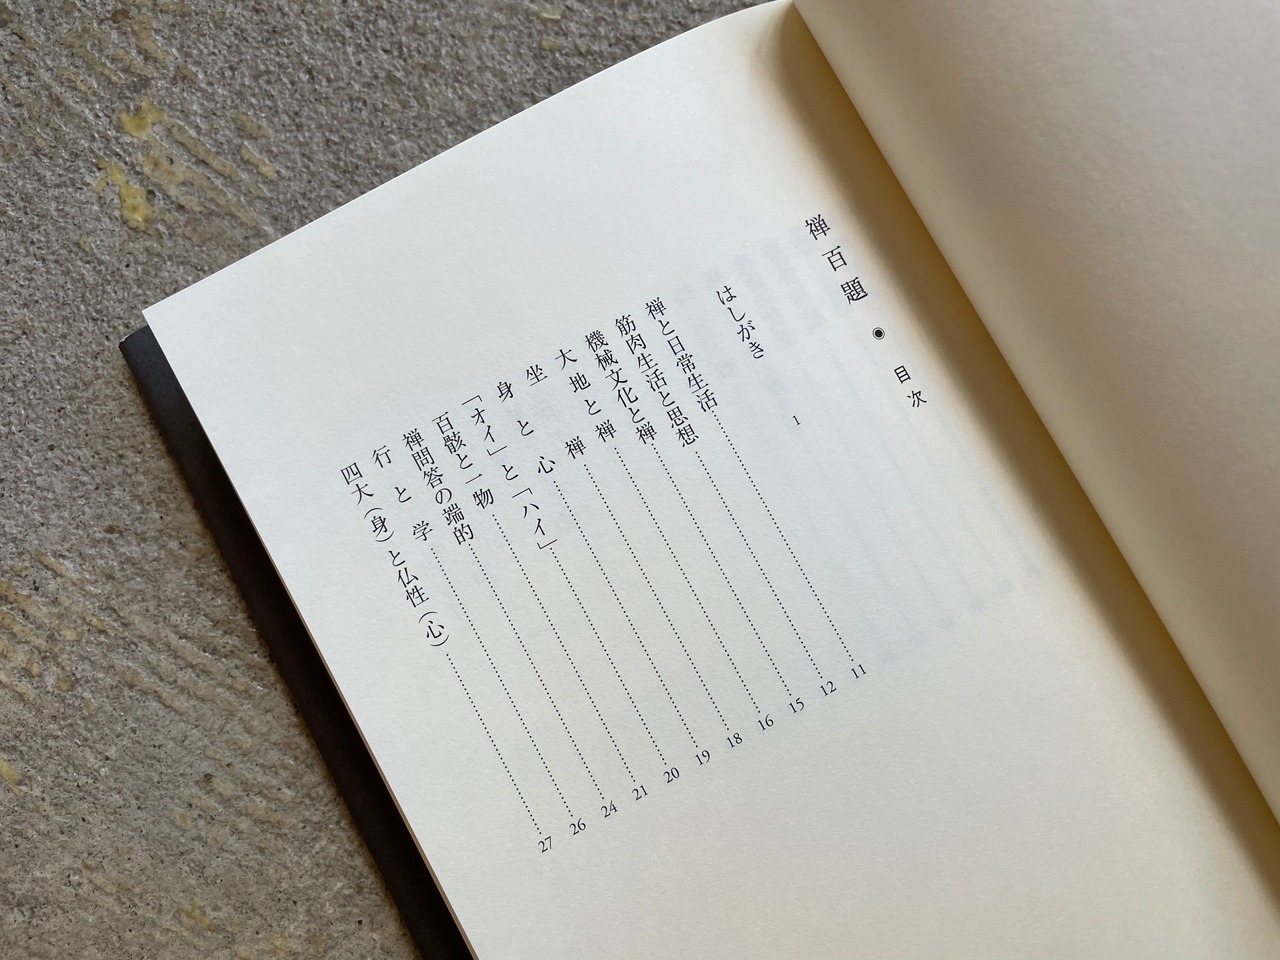 禅百題 ◉ 目次
はしがき 1
禅と日常生活 11
筋肉生活と思想 12
機械文化と禅 15
大地と禅 16
坐禅 18
身と心 19
「オイ」と「ハイ」 20
百骸と一物 21
禅問答の端的 24
行と学 26
四大（身）と仏性（心） 27